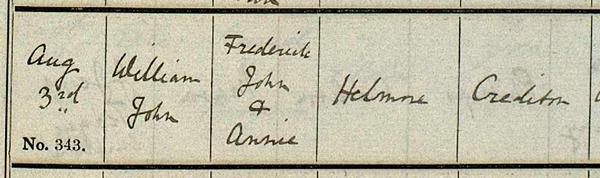 Aug
3rd
No. 343.
William
John
Frederick
John
&
Annie
Helmore
Crediton